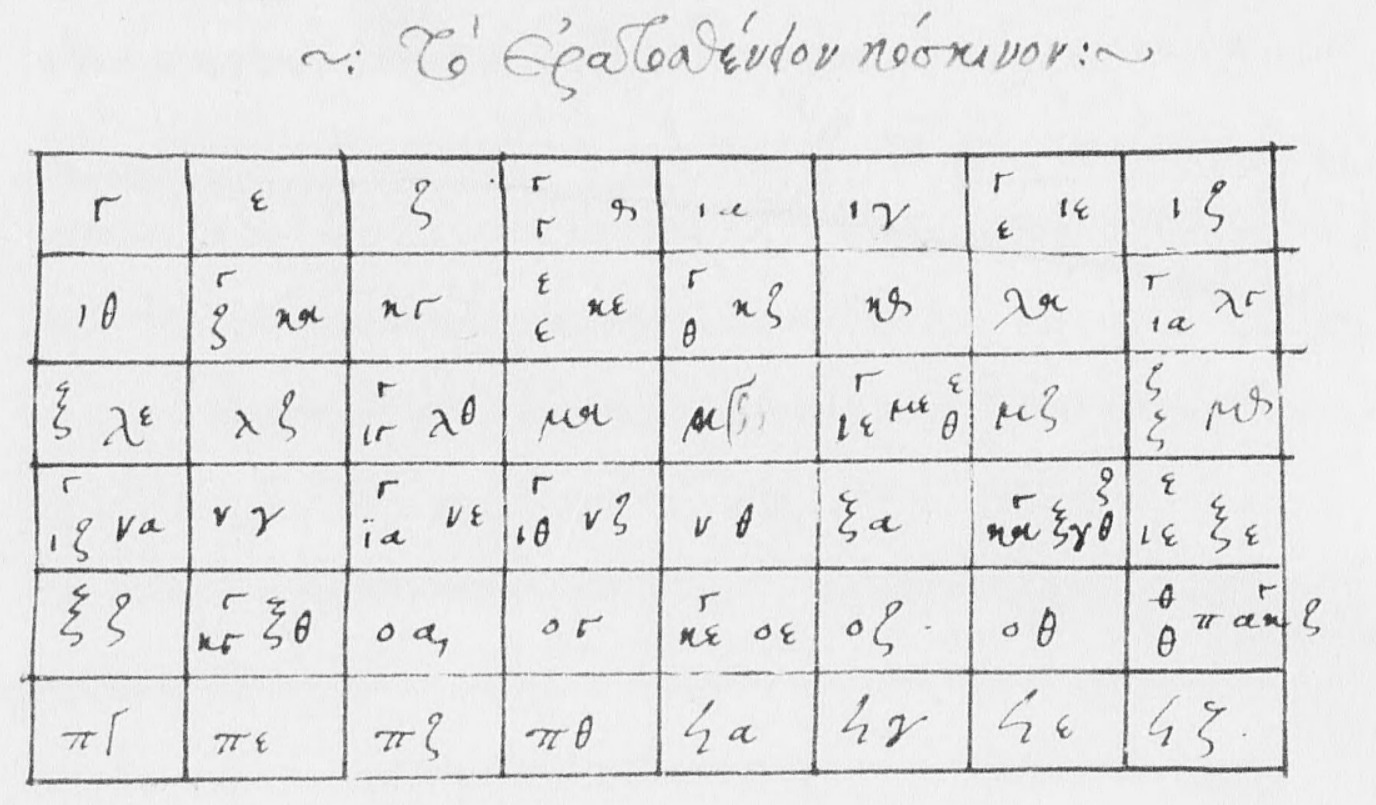 ~: Τὸ Ἐρατοσθένειον κόσκινον :~
γ ε ζ γ γ θ ια ιγ γ ε ιε ιζ
ιθ γ ζ κα κγ ε ε κε γ θ κζ κθ λα γ ια λγ
ε ζ λε λζ γ ιγ λθ μα μγ γ ιε με ε θ μζ ζ ζ μθ
γ ιζ να νγ γ ια νε γ ιθ νζ νθ ξα γ κα ξγ ζ θ ε ιε ξε
ξζ γ κγ ξθ οα ογ γ κε οε οζ οθ θ θ πα γ κζ
πγ πε πζ πθ ϟα ϟγ ϟε ϟζ